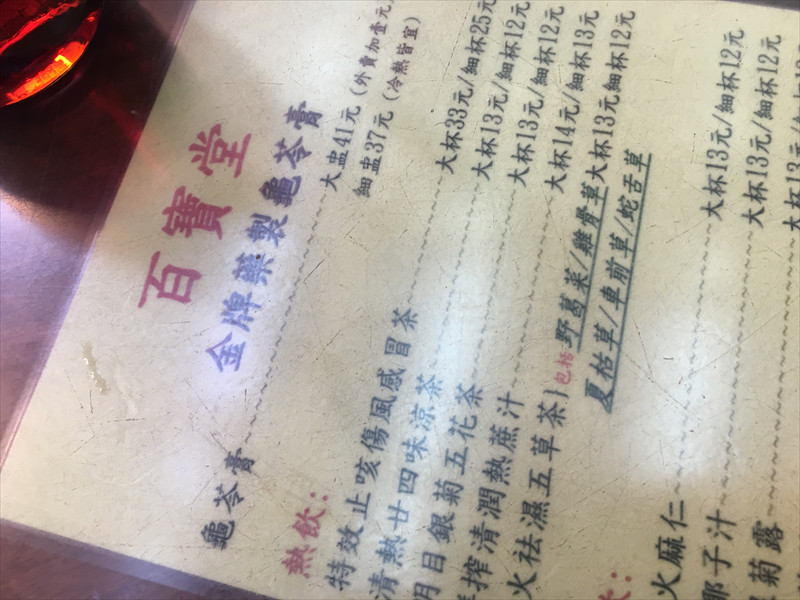 百寶堂
金牌藥製龜苓膏
龜苓膏~~~大盅41元（外賣加壹元）
細盅37元（冷熱皆宜）
熱飲：
特效止咳傷風感冒茶~~~大杯33元/細杯25元
清熱廿四味涼茶~~~大杯13元/細杯12元
明目銀菊五花茶~~~大杯13元/細杯12元
榨清潤熱蔗汁~~~大杯14元/細杯13元
火祛濕五草茶}包括野葛菜/雞骨草大杯13元細杯12元
夏枯草/車前草/蛇舌草
飲：
火麻仁~~~大杯13元/細杯12元
椰子汁~~~大杯13元/細杯12元
菊露~~~大杯13元